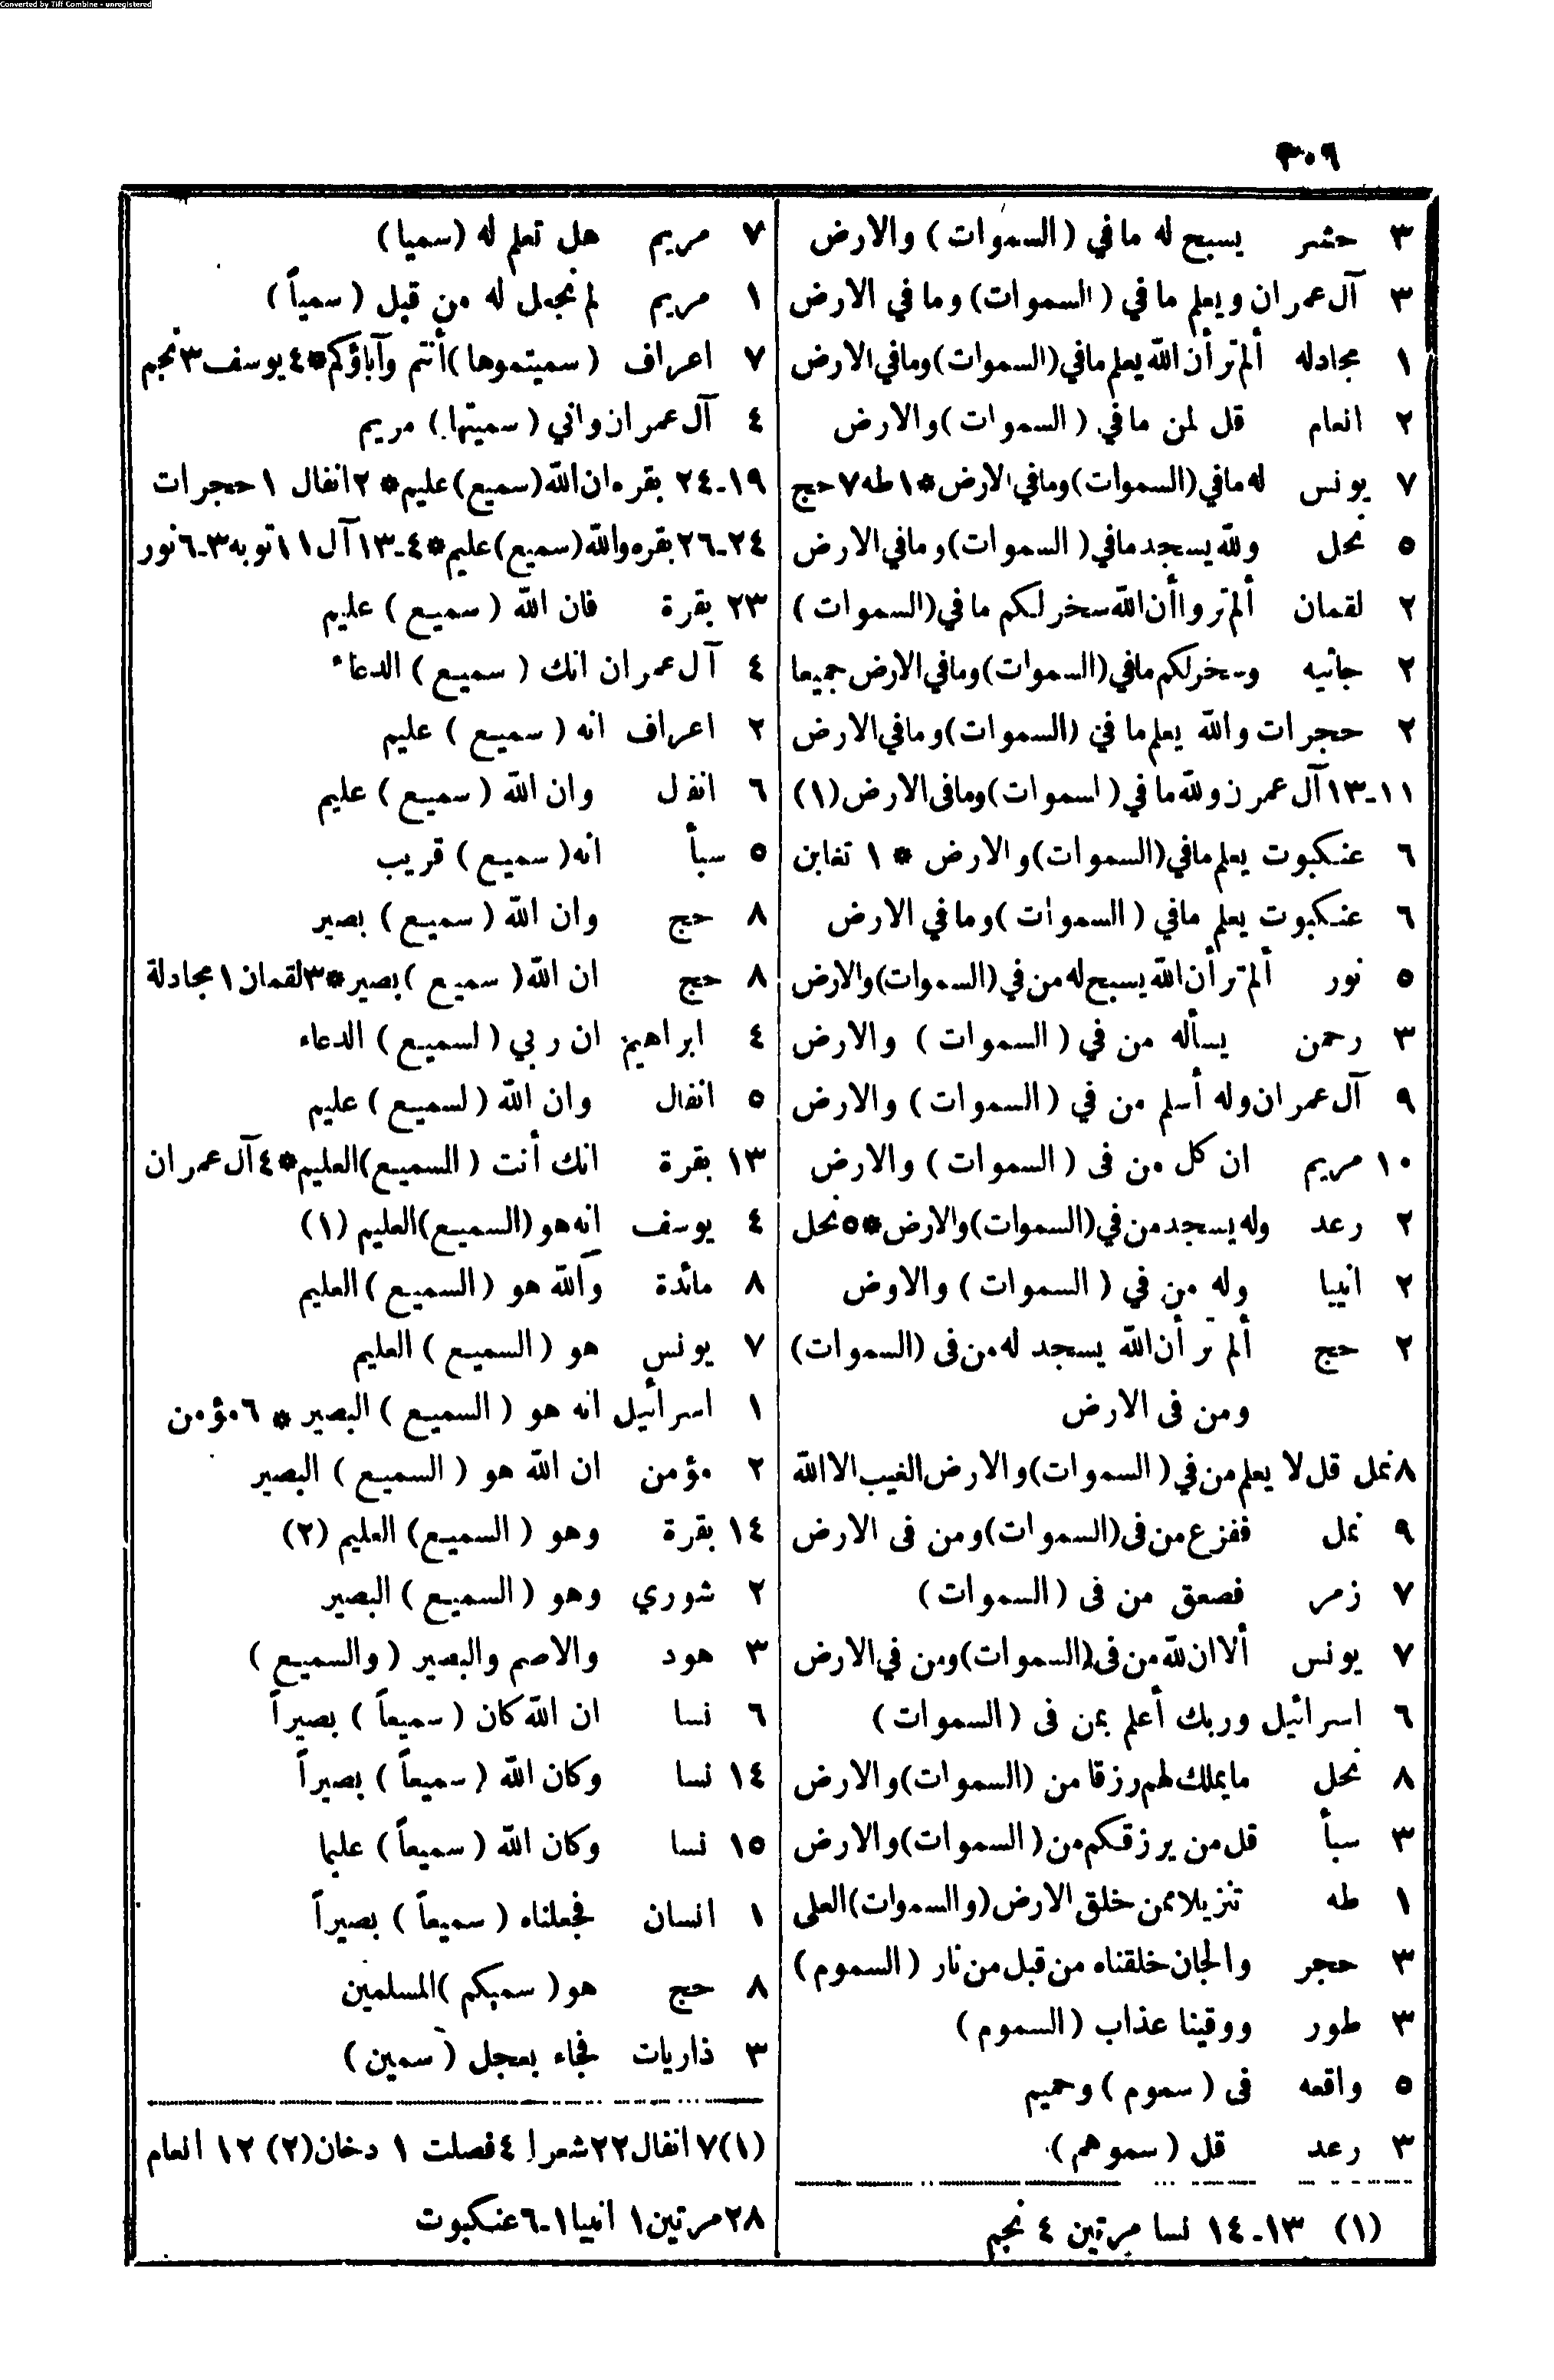 Converted by Tiff Combine - unregistered
٣٠٩
٣ حشر يسبح له ما في (السموات) والارض
٣ آل عمران ويعلم ما في (السموات) وما في الارض
١ مجادله ألم تر أن الله يعلم ما في (السموات) وما في الارض
٢ انعام قل لمن ما في (السموات) والارض
٧ يونس له ما في (السموات) وما في الارض * ١ طه ٧ حج
٥ نحل ولله يسجد ما في (السموات) وما في الارض
٢ لقمان ألم تروا أن الله سخر لكم ما في (السموات)
٢ جاثيه وسخر لكم ما في (السموات) وما في الارض جميعا
٢ حجرات والله يعلم ما في (السموات) وما في الارض
١١-١٣ آل عمرن ولله ما في (اسموات) وما فى الارض (١)
٦ عنكبوت يعلم ما في (السموات) والارض * ١ تغابن
٦ عنكبوت يعلم ما في (السموات) وما في الارض
٥ نور ألم تر أن الله يسبح له من في (السموات) والارض
٣ رحمن يسأله من في (السموات) والارض
٩ آل عمران وله أسلم من في (السموات) والارض
١٠ مريم ان كل من فى (السموات) والارض
٢ رعد وله يسجد من في (السموات) والارض * ٥ نحل
٢ انبيا وله من في (السموات) والاوض
٢ حج ألم تر أن الله يسجد له من فى (السموات)
ومن فى الارض
٨ نمل قل لا يعلم من في (السموات) والارض الغيب الا الله
٩ نمل ففزع من فى (السموات) ومن فى الارض
٧ زمر فصعق من فى (السموات)
٧ يونس ألا ان لله من فى (السموات) ومن في الارض
٦ اسرائيل وربك أعلم بمن فى (السموات)
٨ نحل ما يملك لهم رزقا من (السموات) والارض
٣ سبأ قل من يرزقكم من (السموات) والارض
١ طه تنزيلا ممن خلق الارض (والسموات) العلى
٣ حجر والجان خلقناه من قبل من نار (السموم)
٣ طور ووقينا عذاب (السموم)
٥ واقعه فى (سموم) وحميم
٣ رعد قل (سموهم)
(١) ١٣-١٤ نسا مرتين ٤ نجم
٧ مريم هل تعلم له (سميا)
١ مريم لم نجعل له من قبل (سمياً)
٧ اعراف (سميتموها) أنتم وآباؤكم * ٤ يوسف ٣ نجم
٤ آل عمران واني (سميتها) مريم
١٩-٢٤ بقره ان الله (سميع) عليم * ٢ انفال ١ حجرات
٢٤-٢٦ بقره والله (سميع) عليم * ٤-١٣ آل ١١ توبه ٣-٦ نور
٢٣ بقرة فان الله (سميع) عليم
٤ آل عمران انك (سميع) الدعاء
٢ اعراف انه (سميع) عليم
٦ انفل وان الله (سميع) عليم
٥ سبأ انه (سميع) قريب
٨ حج وان الله (سميع) بصير
٨ حج ان الله (سميع) بصير * ٣ لقمان ١ مجادلة
٤ ابراهيم ان ربي (لسميع) الدعاء
٥ انفال وان الله (لسميع) عليم
١٣ بقرة انك أنت (السميع) العليم * ٤ آل عمران
٤ يوسف انه هو (السميع) العليم (١)
٨ مائدة والله هو (السميع) العليم
٧ يونس هو (السميع) العليم
١ اسرائيل انه هو (السميع) البصير * ٦ مؤمن
٢ مؤمن ان الله هو (السميع) البصير
١٤ بقرة وهو (السميع) العليم (٢)
٢ شوري وهو (السميع) البصير
٣ هود والاصم والبصير (والسميع)
٦ نسا ان الله كان (سميعاً) بصيراً
١٤ نسا وكان الله (سميعاً) بصيراً
١٥ نسا وكان الله (سميعاً) عليما
١ انسان فجعلناه (سميعاً) بصيراً
٨ حج هو (سميكم) المسلمين
٣ ذاريات فجاء بعجل (سمين)
(١) ٧ انفال ٢٢ شعرا ٤ فصلت ١ دخان (٢) ١٢ انعام
٢٨ مرتين ١ انبيا ١-٦ عنكبوت